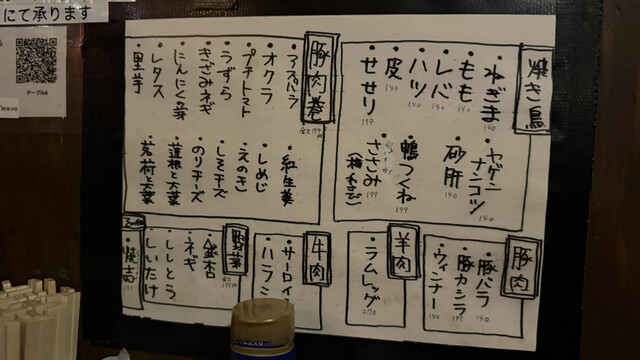 にて承ります
テーブル4
leave
焼き鳥
・ねぎま 140
・もも 140
・レバ 140
・ハツ
・皮 140
・せせり 199
・ヤゲンナンコツ 140
・砂肝 140
・鴨つくね 199
・ささみ 199
豚肉巻
・アスパラ
・オクラ
・プチトマト
・うずら
・きざみネギ
・にんにくの芽
・レタス
・里芋
・紅生姜
・しめじ
・えのき
・しそチーズ
・のりチーズ
・蓮根と大葉
・茗荷と大葉
豚肉
・豚バラ 140
・豚カシラ 199
・ウィンナー 140
羊肉
・ラムレッグ 270
牛肉
・サーロイ
・ハラミ
野菜
・銀杏
・ネギ
・ししとう
・しいたけ